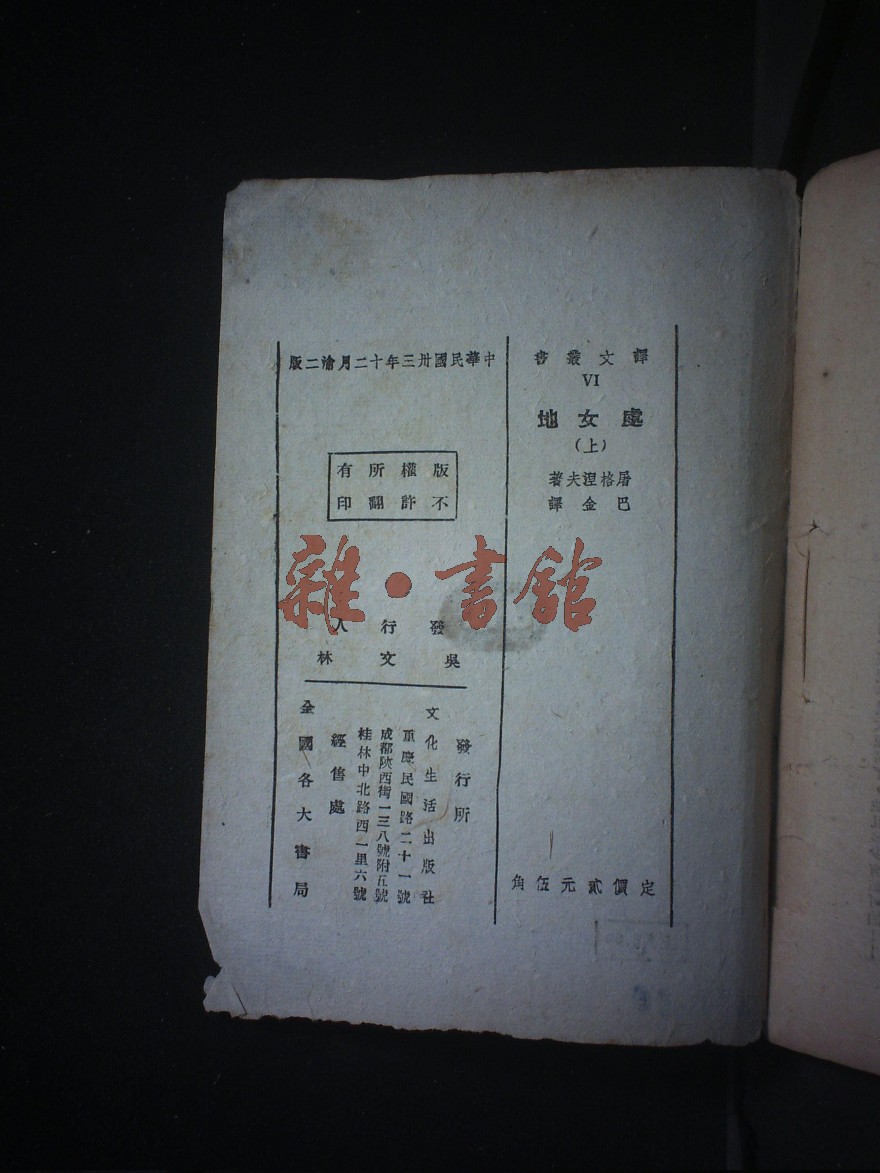 譯文叢書
VI
處女地
(上)
屠格涅夫著
巴金譯
定價貳元伍角
中華民國卅三年十二月渝二版
版權所有
不許翻印
發行人
吳文林
發行所
文化生活出版社
重慶民國路二十一號
成都陝西街一三八號附五號
桂林中北路西一里六號
經售處
全國各大書局
雜·書館